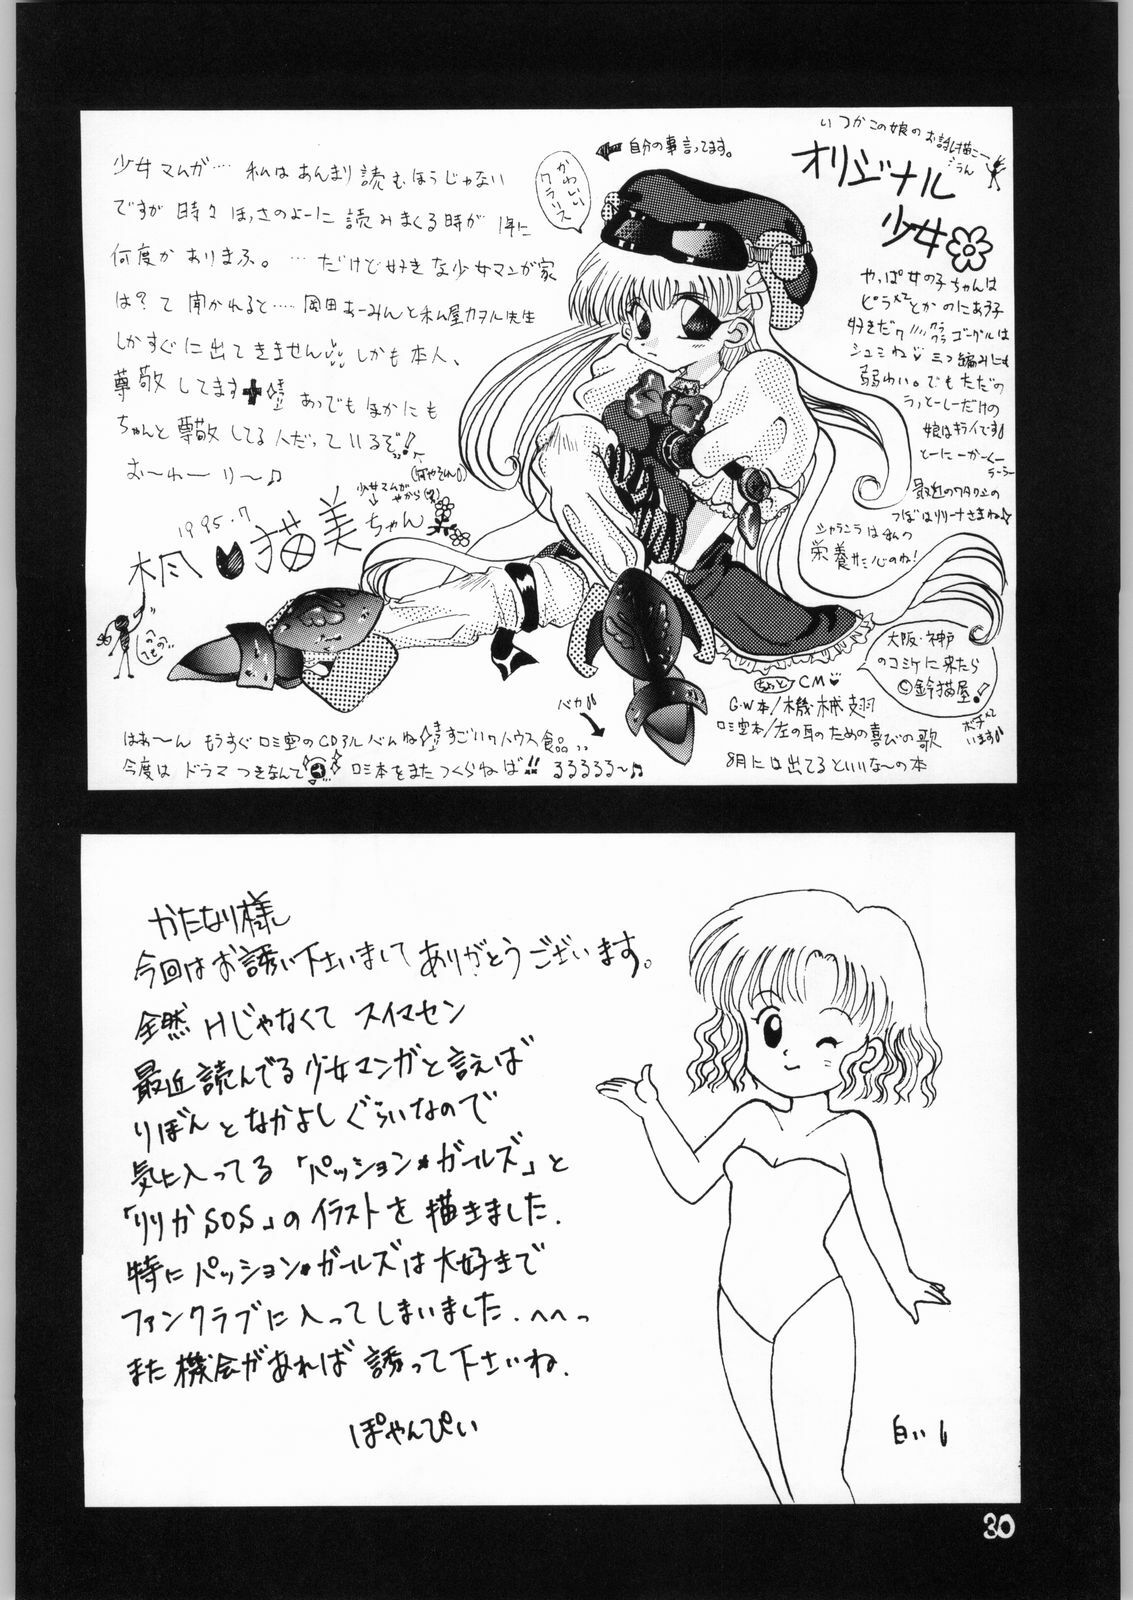 いつかこの娘のお話し描こー
オリジナル
少女
自分の事言ってます。
かわいい
クラリス
少女マムガ…私はあんまり読むほうじゃない
ですが時々ほっさのよーに読みまくる時が1年に
何度かありまふ。…だけど好きな少女マンガ家
は？て聞かれると……岡田あーみんと私屋カヲル先生
しかすぐに出てきませんしかも本人、
尊敬してます あっでもほかにも
ちゃんと尊敬してる人だっているぞ!
お〜わーり〜♪
少女マムガ
1995.7
猫美ちゃん
やっぱ女の子ちゃんは
ピラとかのにあう子
好きだワ ゴーグルは
シュミね 三つ編みにも
弱わい。でもただの
うっとーしーだけの
娘はキライです
とーにーかーくー
らーらー
最近のワタクシの
つぼはリリーナさまね
シャランラは私の
栄養サミ心のね!
大阪・神戸
のコミケに来たら
©鈴猫屋!
ちょっとCM
G.W本/機械翅
ロミ空本/左の耳のための喜びの歌
8月には出てるといいな〜の本
バカ
はぁ〜ん もうすぐロミ空のCDアルバムね すごいワハウス食品..
今度はドラマつきなんて ロミ本をまたつくらねば!! るるるるる〜♫
かたなり様
今回はお誘い下さいましてありがとうございます。
全然Hじゃなくてスイマセン
最近読んでる少女マンガと言えば
りぼんとなかよしぐらいなので
気に入ってる「パッション★ガールズ」と
「リリカSOS」のイラストを描きました.
特にパッション★ガールズは大好きで
ファンクラブに入ってしまいました.へへっ
また機会があれば誘って下さいね.
ぽやんぴい
白いし
30